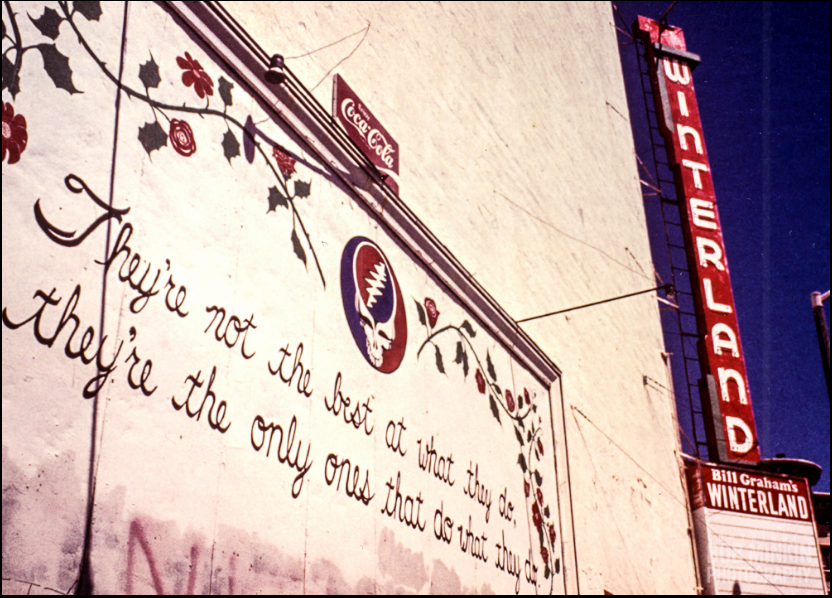 They're not the best at what they do,
they're the only ones that do what they do.
Coca-Cola
WINTERLAND
Bill Graham's
WINTERLAND